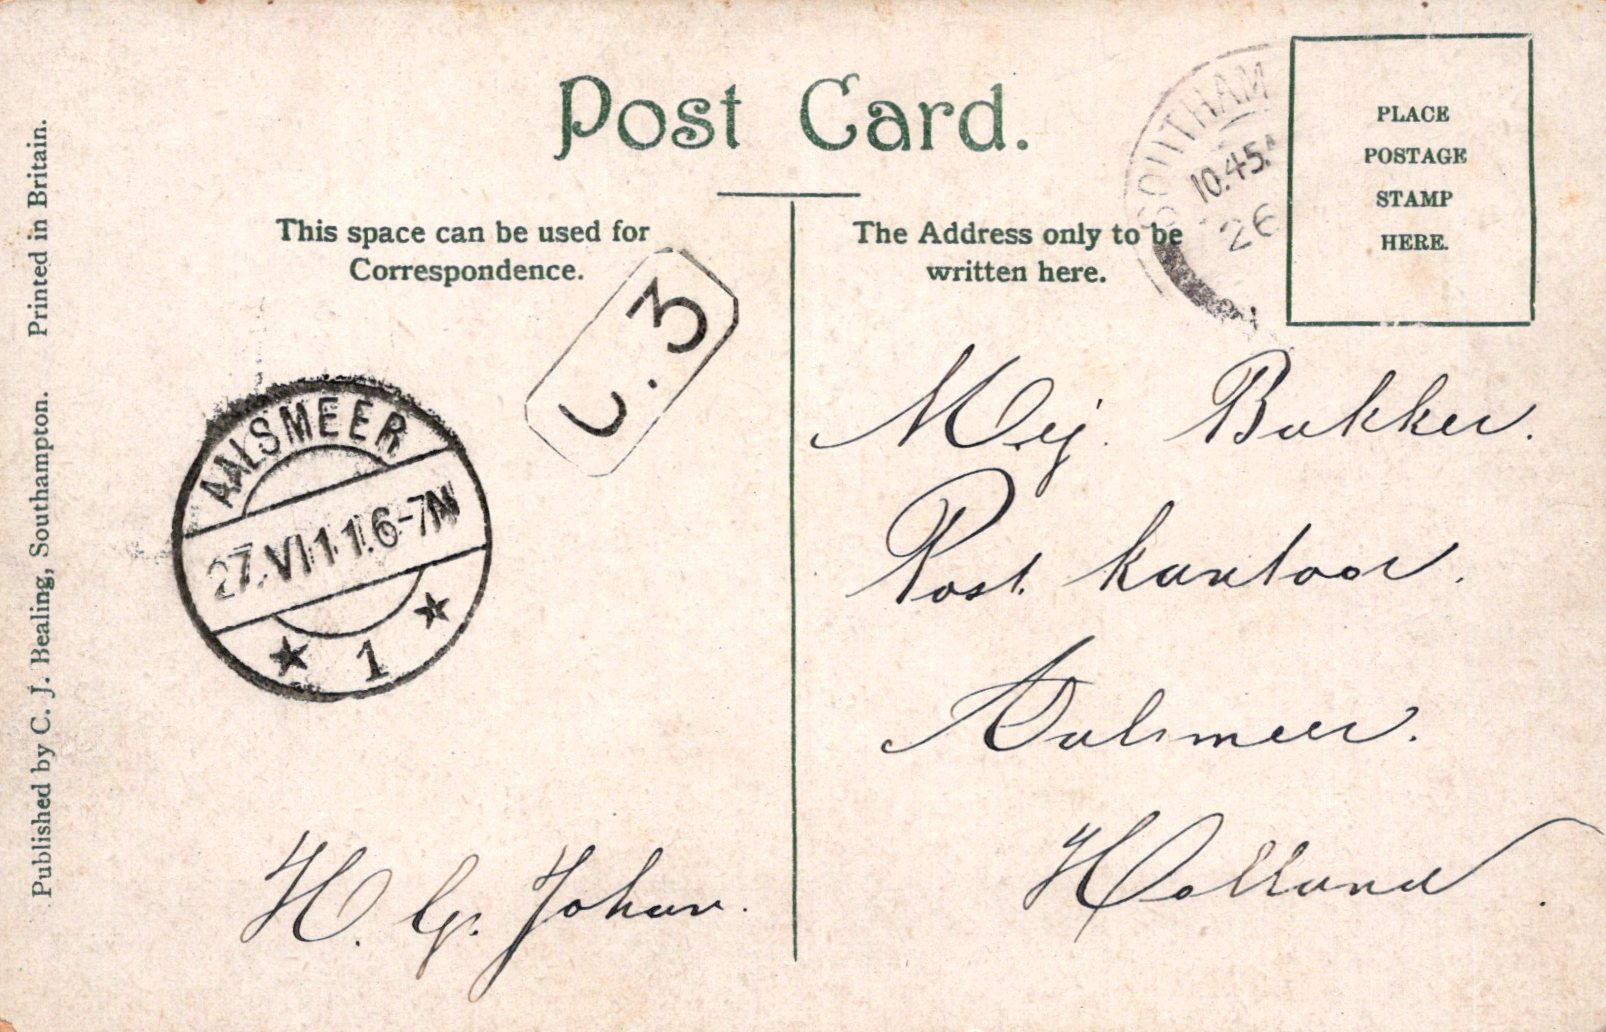 Post Card.
This space can be used for
Correspondence.
The Address only to be
written here.
PLACE
POSTAGE
STAMP
HERE.
SOUTHAM
10.45
26
C.3
AALSMEER
27.VI 11.6-7N
1
Mej. Bakker.
Post kantoor.
Aalsmeer.
Holland.
H. G. Johan.
Published by C. J. Bealing, Southampton. Printed in Britain.